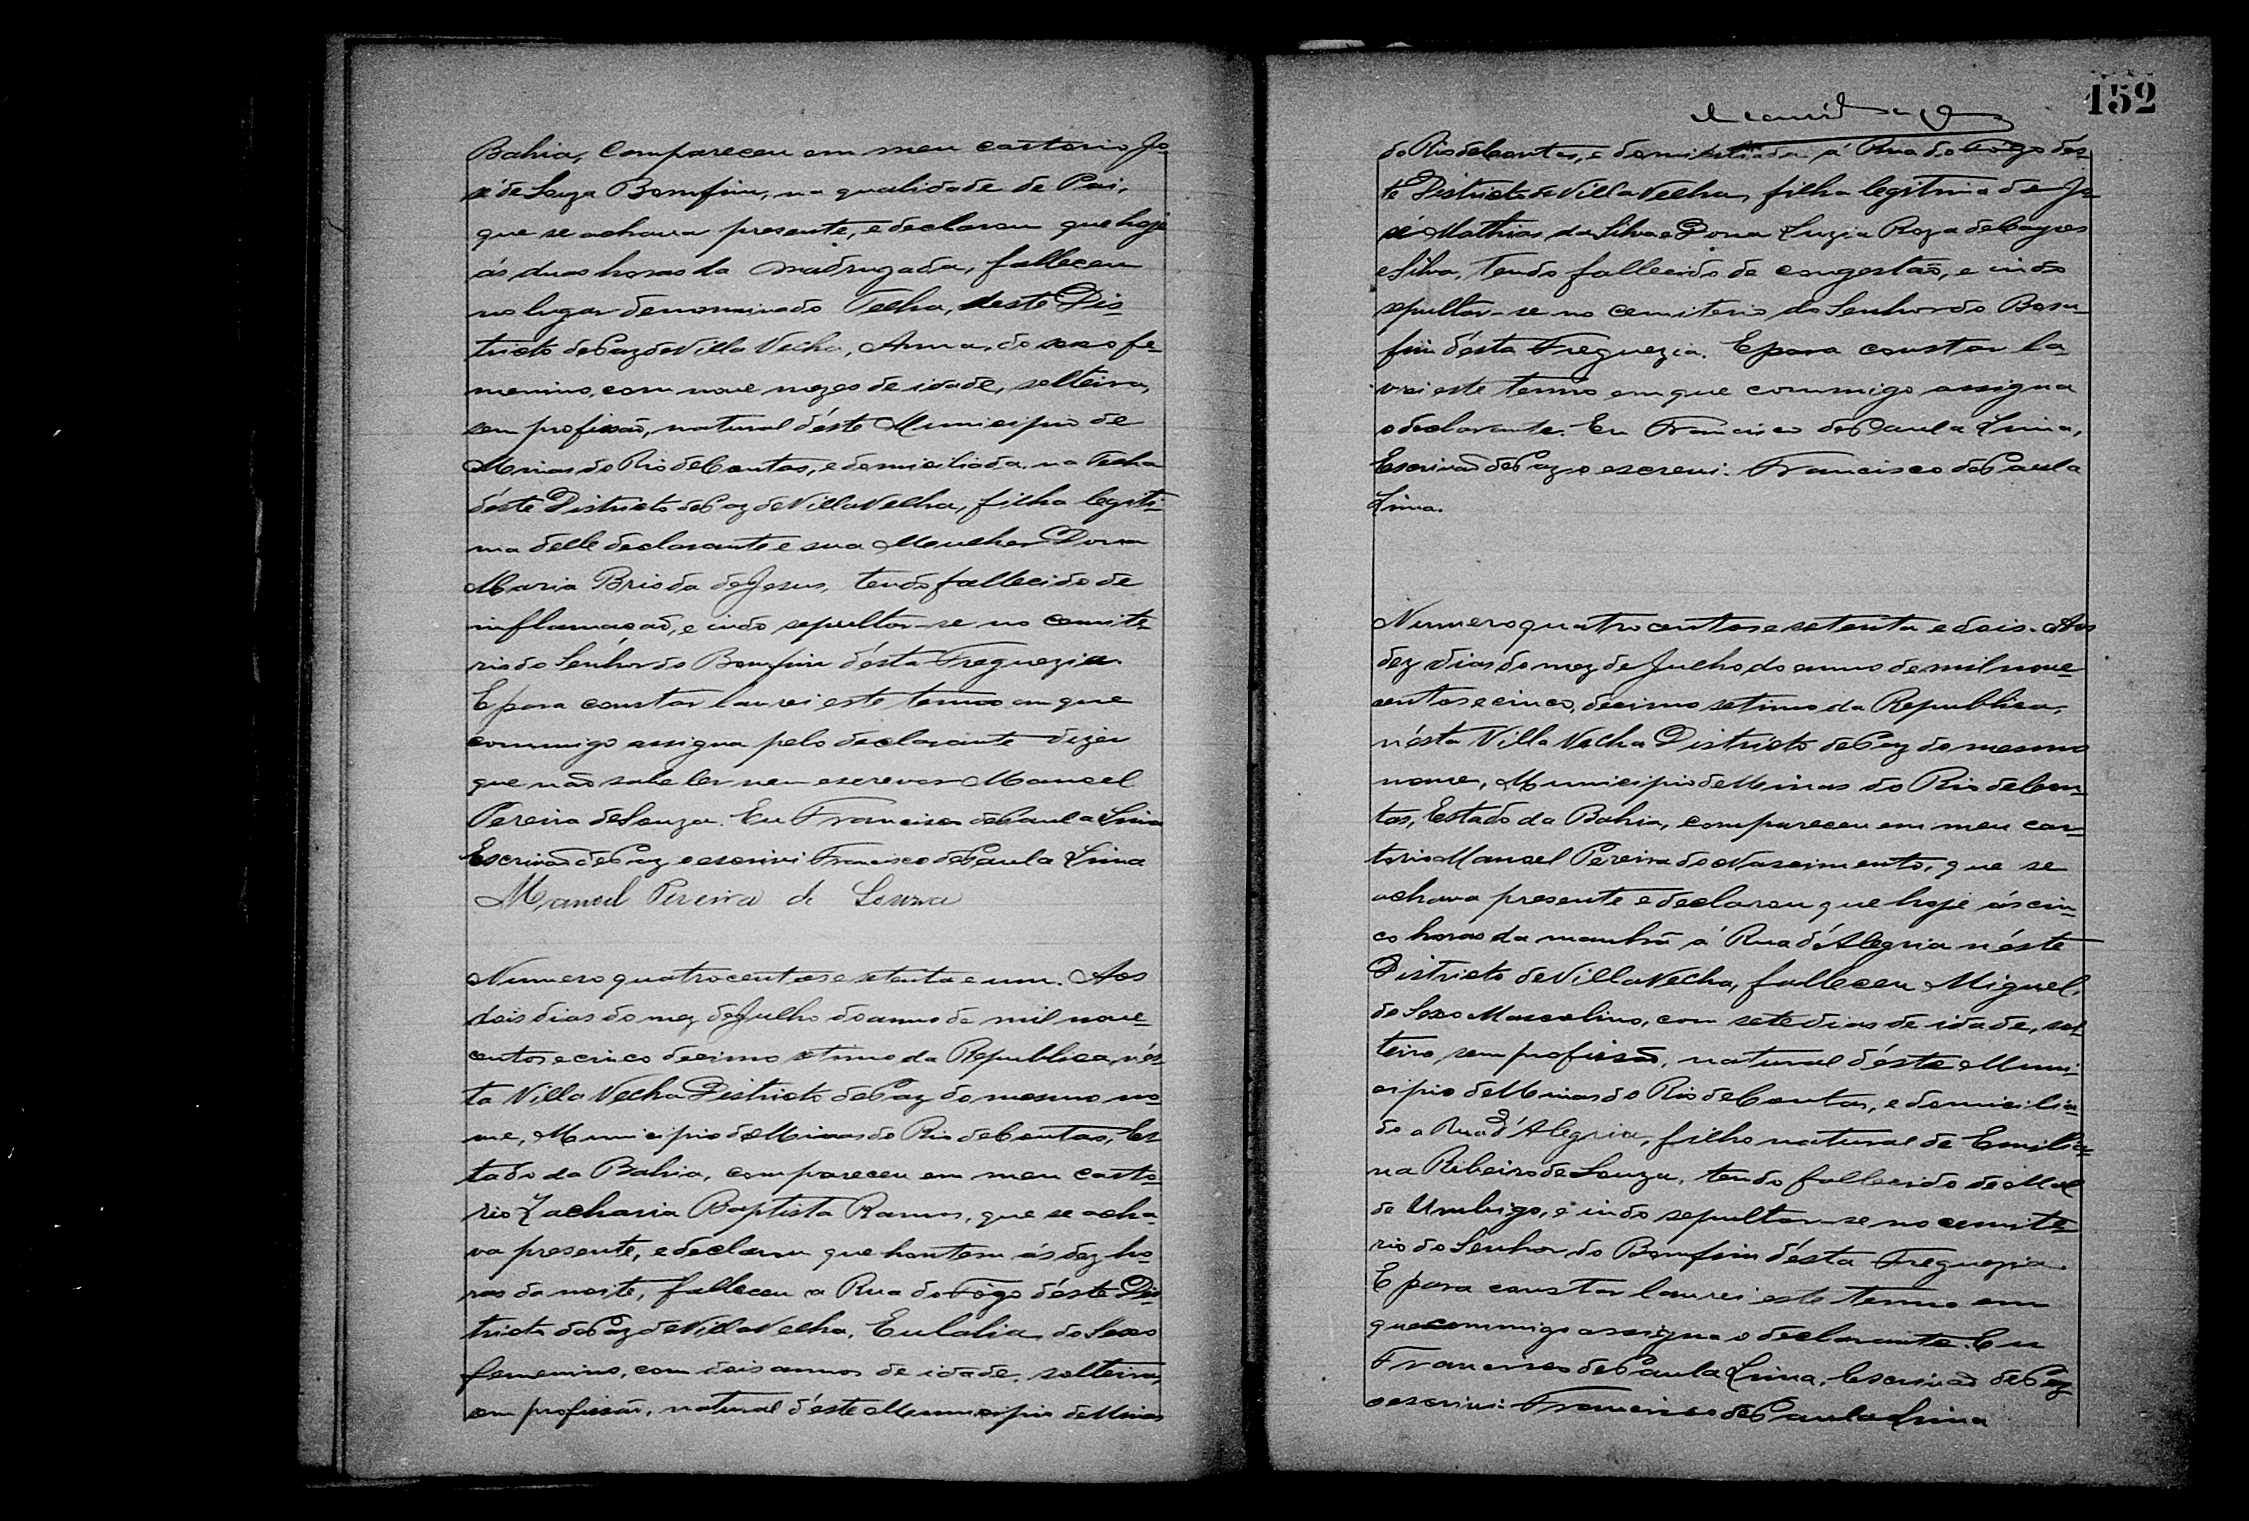 Bahia, compareceu em meu cartorio Jo-
sé de Souza Bomfim, na qualidade de Pai,
que se achava presente, e declarou que hoje
ás duas horas da madrugada, falleceu
no lugar denominado Telha, deste Dis-
tricto de Paz de Villa Velha, Anna, do sexo fe-
menino, com nove mezes de idade, solteira,
sem profissão, natural d'éste Municipio de
Minas do Rio de Contas, e domiciliada na Telha
d'éste Districto de Paz de Villa Velha, filha legiti-
ma delle declarante e sua Mulher Dona
Maria de Jesus, tendo fallecido de
inflamação, e indo sepultar-se no cemite-
rio do Senhor do Bomfim d'ésta Freguezia.
E para constar lavrei este termo em que
commigo assigna pelo declarante dizer
que não sabe ler nem escrever Manoel
Pereira de Souza. Eu Francisco de Paula Lima
Escrivão de Paz o escrivi Francisco de Paula Lima
Manoel Pereira de Souza
Numero quatrocentos e setenta e um. Aos
dois dias do mez de Julho do anno de mil nove-
centos e cinco decimo setimo da Republica, n'és-
ta Villa Velha Districto de Paz do mesmo no-
me, Municipio de Minas do Rio de Contas, Es-
tado da Bahia, compareceu em meu carto-
rio Zacharia Baptista Ramos, que se acha-
va presente, e declarou que hontem ás dez ho-
ras da noite, falleceu a Rua do Fôgo d'éste Dis-
tricto de Paz de Villa Velha, Eulalia, do Sexo
femenino, com dois annos de idade, solteira,
sem profissão, natural d'éste Municipio de Minas
152
do Rio de Contas, e domiciliada á Rua do Fôgo dés-
te Districto de Villa Velha, filha legitima de Jo-
sé Mathias da Silva e Dona Luzia Roza de Cayres
e Silva, tendo fallecido de congestão, e indo
sepultar-se no cemiterio do Senhor do Bom-
fim d'ésta Freguezia. E para constar la-
vrei este termo em que commigo assigna
o declarante. Eu Francisco de Paula Lima,
Escrivão de Paz o escrevi. Francisco de Paula
Lima.
Numero quatrocentos e setenta e dois. Aos
dez dias do mez de Julho do anno de mil nove-
centos e cinco, decimo setimo da Republica,
n'ésta Villa Velha Districto de Paz do mesmo
nome, Municipio de Minas do Rio de Con-
tas, Estado da Bahia, compareceu em meu car-
torio Manoel Pereira do Nascimento, que se
achava presente e declarou que hoje ás cin-
co horas da manhã á Rua d'Alegria n'éste
Districto de Villa Velha, falleceu Miguel,
do Sexo Masculino, com sete dias de idade, sol-
teiro, sem profissão, natural d'éste Muni-
cipio de Minas do Rio de Contas, e domicilia-
do a Rua d'Alegria, filho natural de Emilia-
na Ribeiro de Souza, tendo fallecido de Mal
de Umbigo, e indo sepultar-se no cemite-
rio do Senhor do Bomfim d'ésta Freguezia.
E para constar lavrei este termo em
que commigo assigna o declarante. Eu
Francisco de Paula Lima, Escrivão de Paz
o escrivi: Francisco de Paula Lima